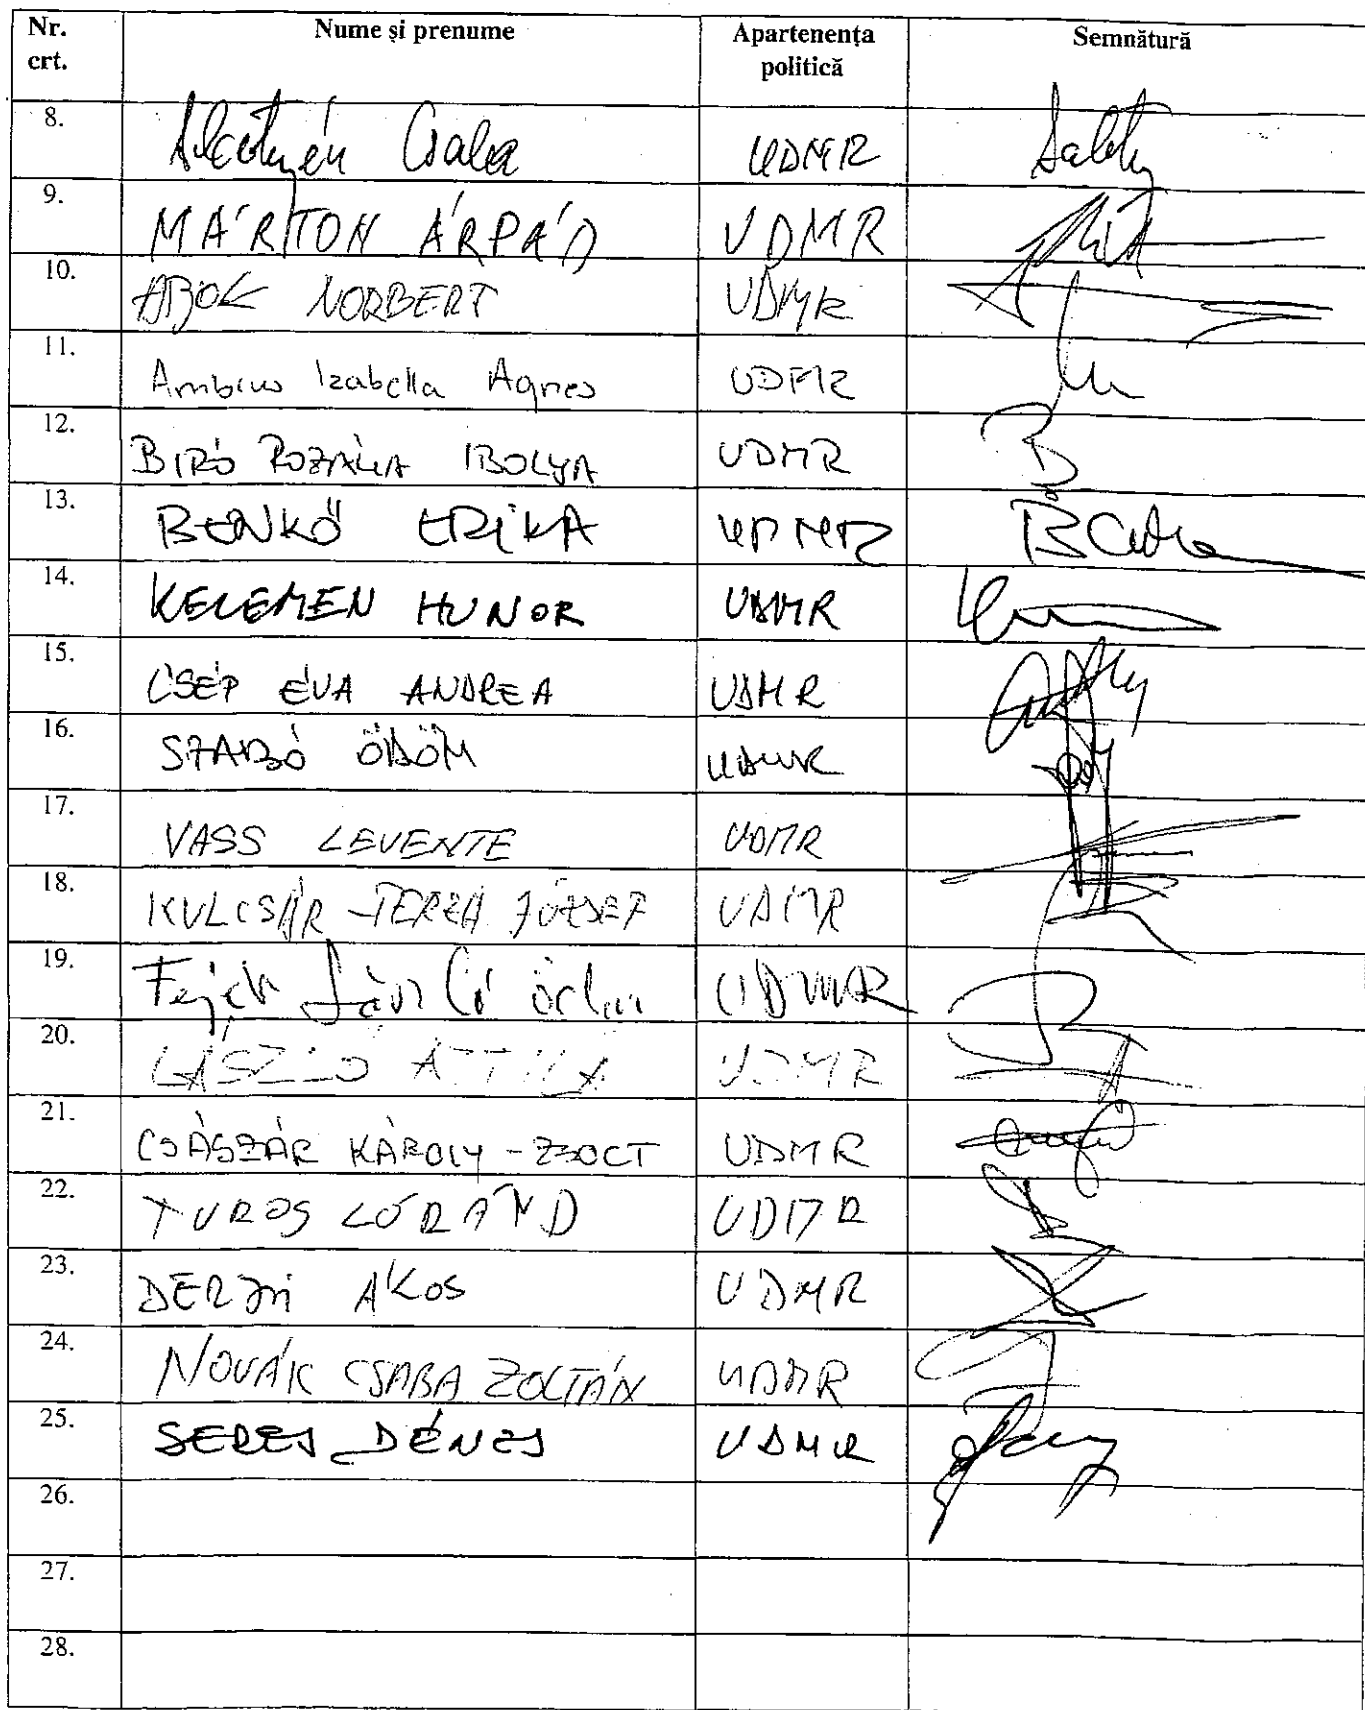 Nr. crt. Nume și prenume Apartenența politică Semnătură
8. Csaba UDMR
9. MÁRTON ÁRPÁD UDMR
10. NORBERT UDMR
11. Ambrus Izabella Agnes UDMR
12. BIRÓ ROZÁLIA IBOLYA UDMR
13. BENKŐ ERIKA UDMR
14. KELEMEN HUNOR UDMR
15. CSÉP ÉVA ANDREA UDMR
16. SZABÓ ÖDÖN UDMR
17. VASS LEVENTE UDMR
18. KULCSÁR-TERZA JÓZSEF UDMR
19. Fejér László Ödön UDMR
20. LÁSZLÓ ATTILA UDMR
21. CSÁSZÁR KÁROLY-ZSOLT UDMR
22. TUROS LÓRÁND UDMR
23. DERZSI ÁKOS UDMR
24. NOVÁK CSABA ZOLTÁN UDMR
25. SERES DÉNES UDMR
26.
27.
28.